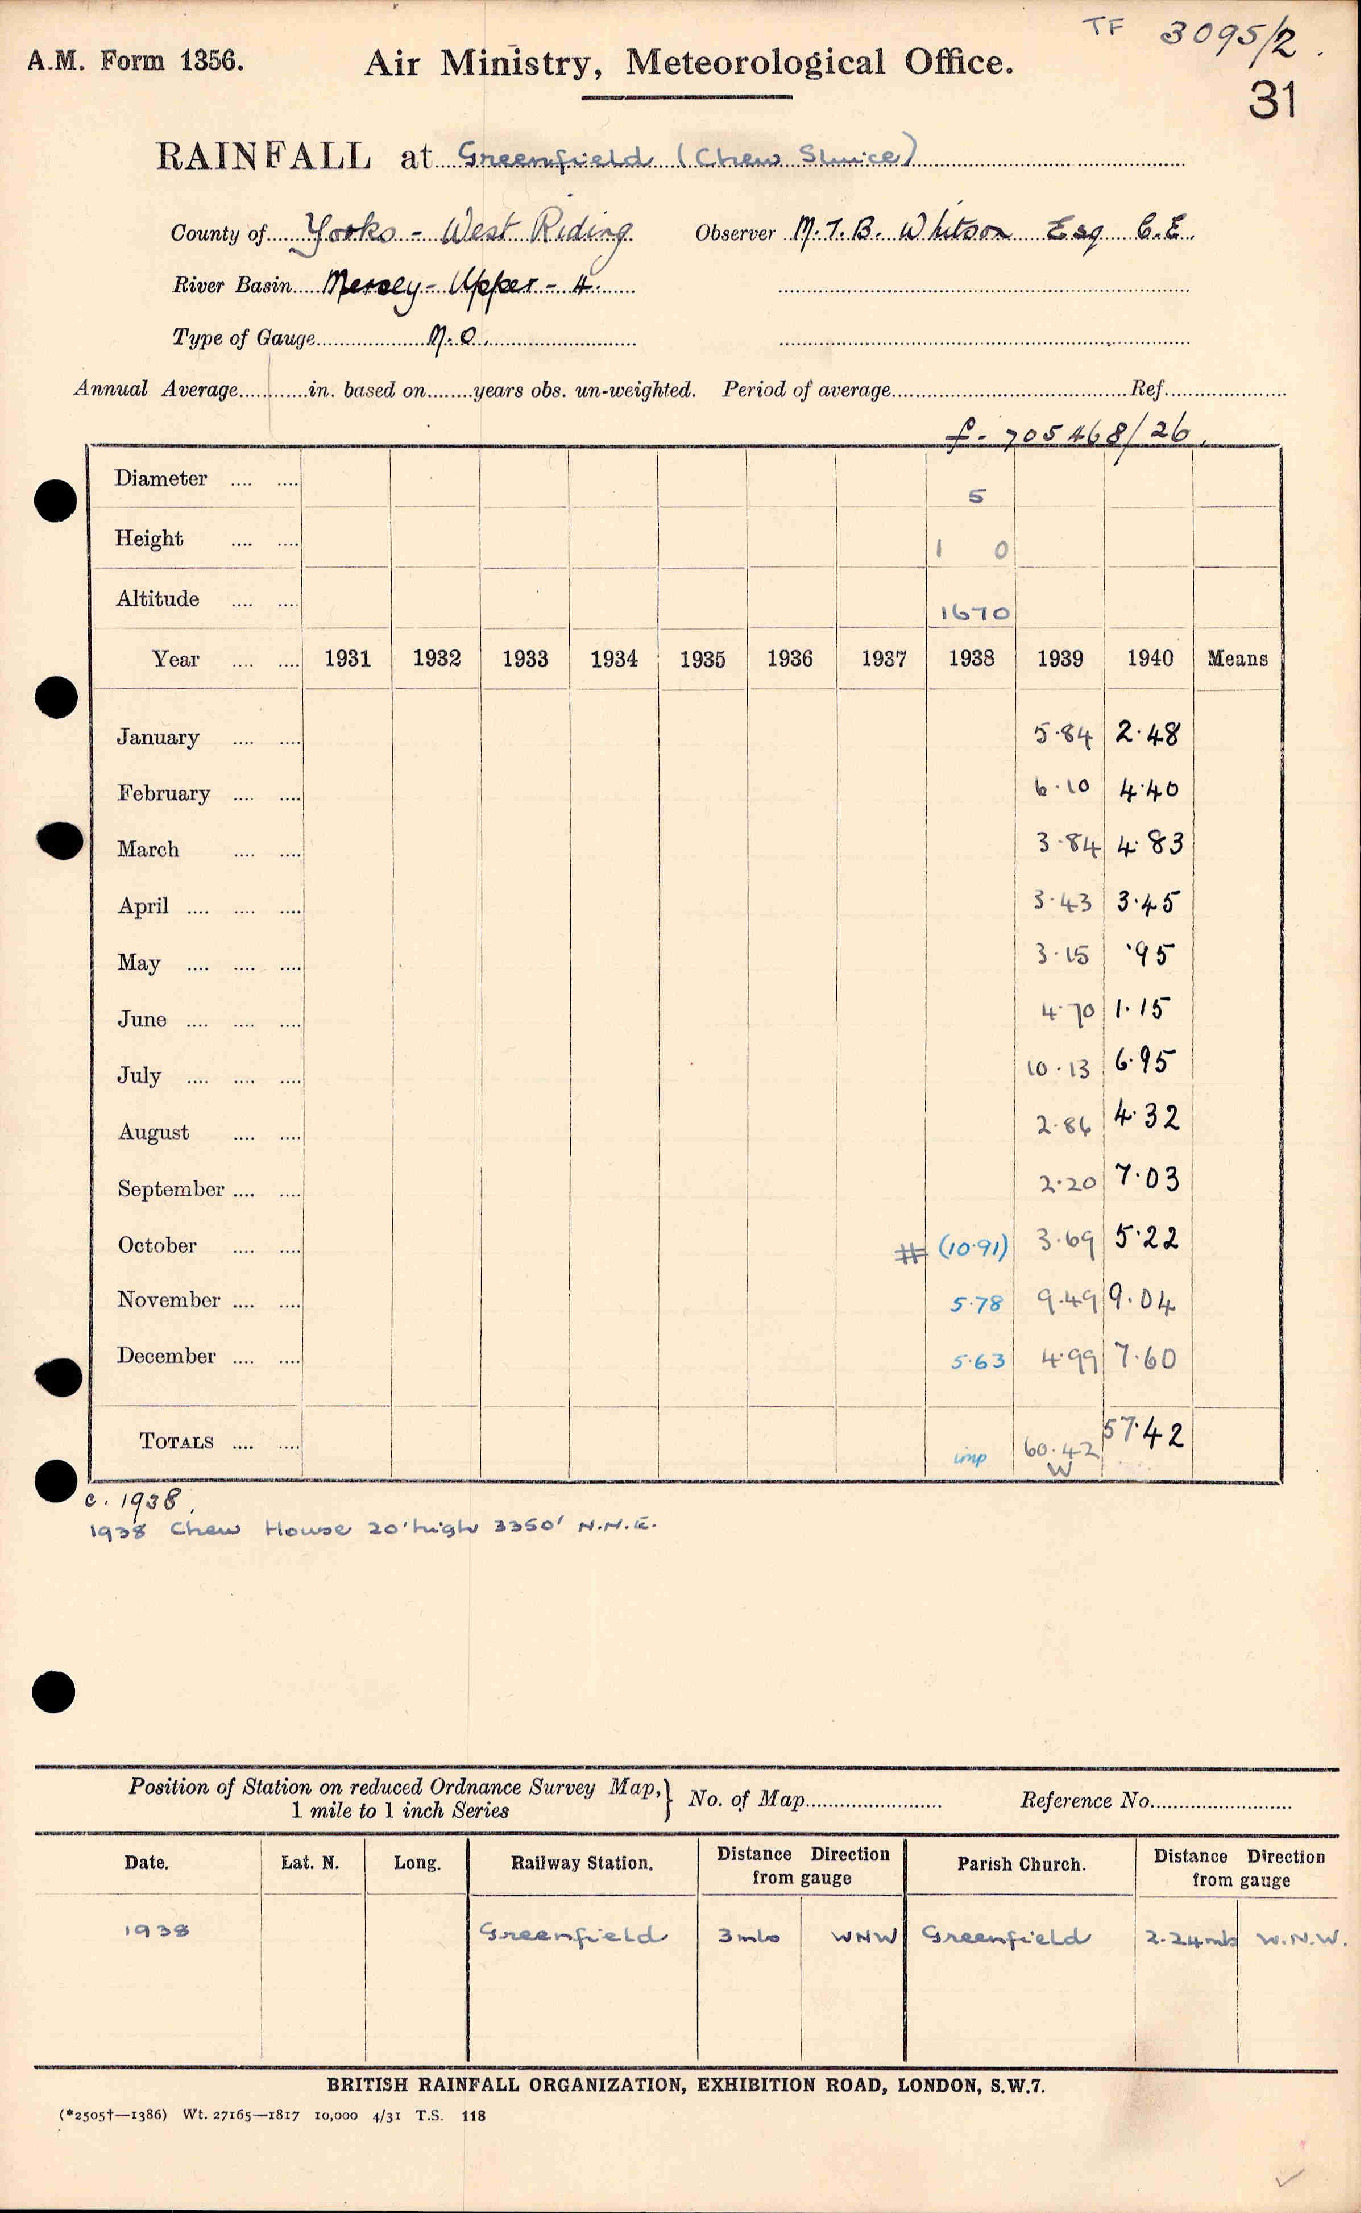 TF 3095/2.
A.M. Form 1356. Air Ministry, Meteorological Office.
31
RAINFALL at Greenfield (Chew Sluice)
County of Yorks - West Riding Observer M.T.B. Whitson Esq C.E.
River Basin Mersey - Upper - 4.
Type of Gauge M.O.
Annual Average in. based on years obs. un-weighted. Period of average Ref.
f. 705468/26.
Diameter 5
Height 1 0
Altitude 1670
Year 1931 1932 1933 1934 1935 1936 1937 1938 1939 1940 Means
January 5.84 2.48
February 6.10 4.40
March 3.84 4.83
April 3.43 3.45
May 3.15 .95
June 4.70 1.15
July 10.13 6.95
August 2.86 4.32
September 2.20 7.03
October # (10.91) 3.69 5.22
November 5.78 9.49 9.04
December 5.63 4.99 7.60
TOTALS imp 60.42 57.42
W
c. 1938.
1938 Chew House 20' high 3350' N.N.E.
Position of Station on reduced Ordnance Survey Map, } No. of Map Reference No.
1 mile to 1 inch Series
Date. Lat. N. Long. Railway Station. Distance Direction from gauge Parish Church. Distance Direction from gauge
1938 Greenfield 3 mls WNW Greenfield 2.24 mls W.N.W.
BRITISH RAINFALL ORGANIZATION, EXHIBITION ROAD, LONDON, S.W.7.
(*2505†—1386) Wt. 27165—1817 10,000 4/31 T.S. 118